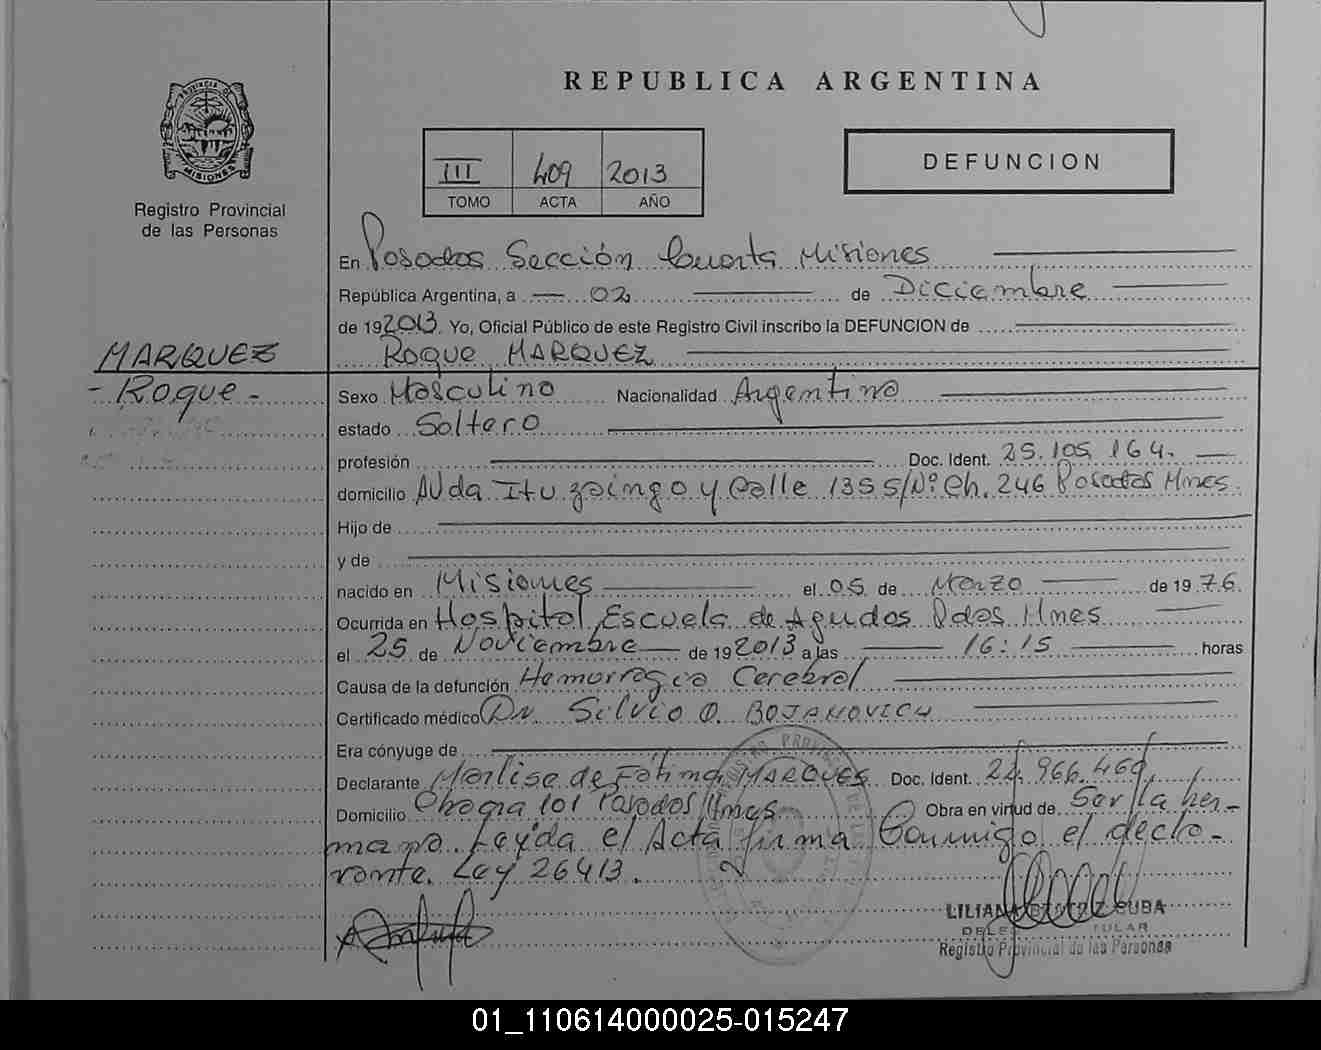 REPUBLICA ARGENTINA
PROVINCIA DE
MISIONES
Registro Provincial
de las Personas
III 409 2013
TOMO ACTA AÑO
DEFUNCION
En Posadas Sección Cuarta Misiones
República Argentina, a 02 de Diciembre
de 192013. Yo, Oficial Público de este Registro Civil inscribo la DEFUNCION de
Roque MARQUEZ
MARQUEZ
- Roque -
Sexo Masculino Nacionalidad Argentino
estado Soltero
profesión Doc. Ident. 25.105.164.
domicilio AVda. Ituzaingo y Calle 135 S/Nº Ch. 246 Posadas Mnes.
Hijo de
y de
nacido en Misiones el 05 de Marzo de 1976.
Ocurrida en Hospital Escuela de Agudos Pdas Mnes
el 25 de Noviembre de 192013 a las 16:15 horas
Causa de la defunción Hemorragia Cerebral
Certificado médico Dr. Silvio O. BOJANOVICH
Era cónyuge de
Declarante Marlise de Fátima MARQUES Doc. Ident. 24.966.469,
Domicilio 101 Posadas Mnes. Obra en virtud de Ser la her-
mana. Leyda el Acta firma Conmigo el decla-
rante. Ley 26413.
LILIANA BEATRIZ CUBA
Registro Provincial de las Personas
01_110614000025-015247